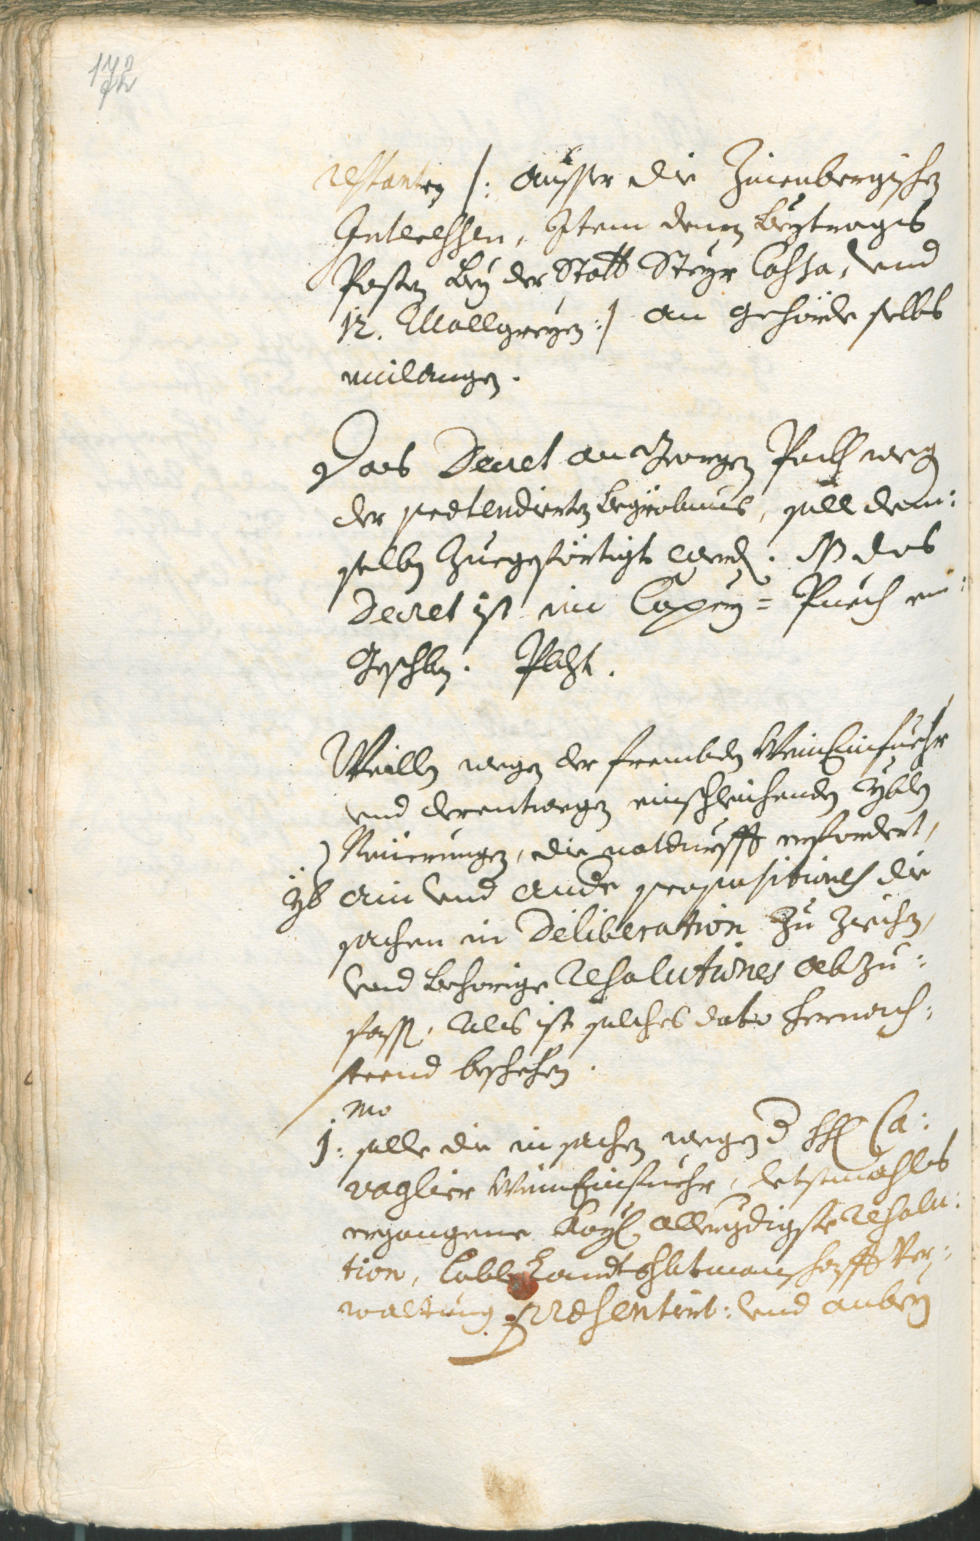 172
restanten /: ausser die Zinenbergischen
Interessen, Item denen Beytrags
Posten bey der Statt Steyr Cassa, vnd
12. :/ an gehörde selbs
einlangen.
Das Decret an Georgen wegen
der praetendierten Begröbnus, solle dem:
selben zuegeförtigt werden. Das
Decret ist im Copey=Puech ein:
Geschben.
Weillen wegen der frembden WeinEinfuehr
vnd derentwegen einschleichenden yblen
Neuerungen, die notdurfft erfordert,
yb ain vnd andre propositiones die
sachen in Deliberation zu ziechen,
vnd behörige resolutiones abzu:
fassen, Als ist solches dato hernach:
stend beschehen.
mo
1: solle die in sachen wegen d HH Ca:
vaglier WeinEinfuehr, letstmahls
ergangene Kays allergdigste resolu:
tion, Lobl Landtshbtmanschafft Ver:
waltung praesentirt: vnd anbey